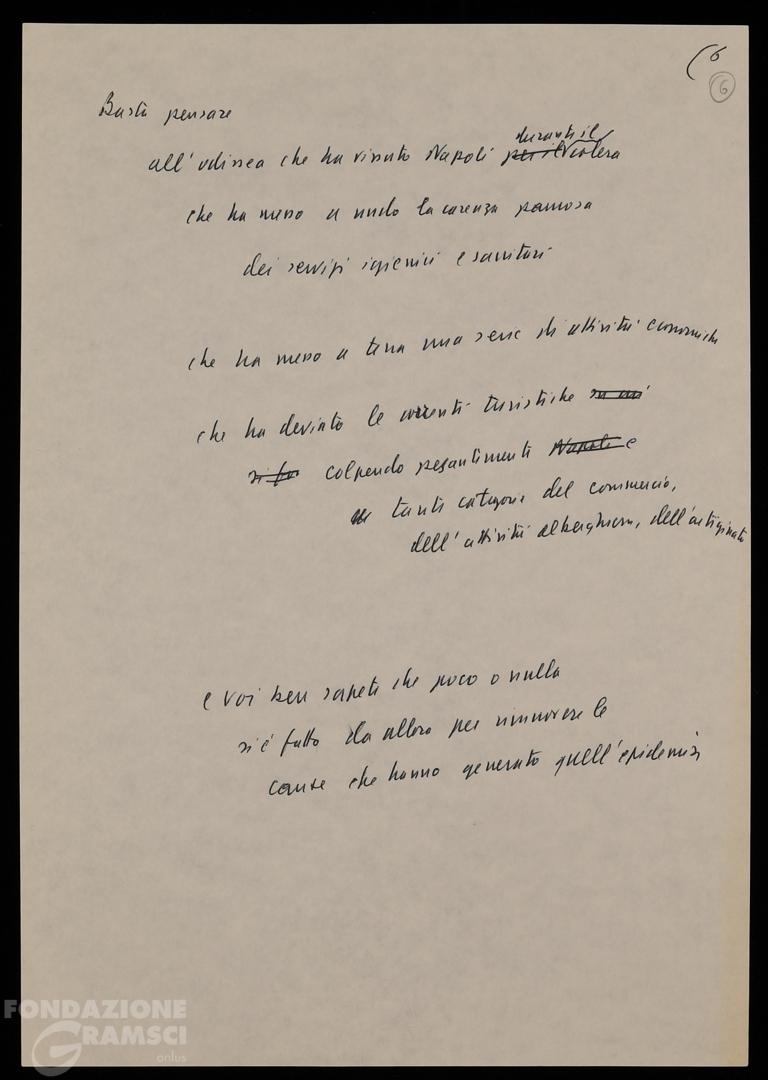 (6
6
Basta pensare
durante il
all'odissea che ha vissuto Napoli per il colera
che ha messo a nudo la carenza paurosa
dei servizi igienici e sanitari
che ha messo a terra una serie di attività economiche
che ha deviato le correnti turistiche
colpendo pesantemente Napoli e
tante categorie del commercio,
dell'attività alberghiera, dell'artigianato
e voi ben sapete che poco o nulla
si è fatto da allora per rimuovere le
cause che hanno generato quell'epidemia
FONDAZIONE
GRAMSCI
onlus